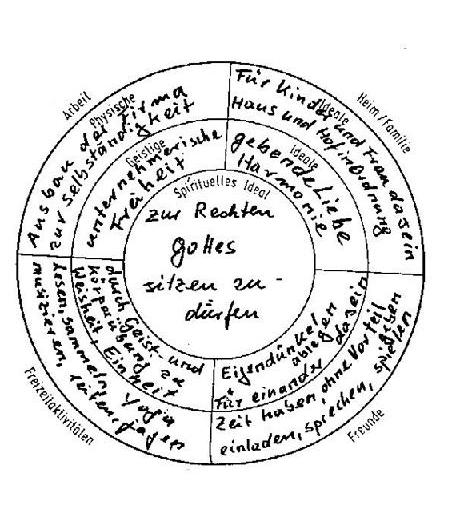 Arbeit
Physische
Geistige
Ausbau der Firma
zur Selbständigkeit
unternehmerische
Freiheit
Heim/Familie
Ideale
Ideale
Für Kinder und Frau dasein
Haus und Hof in Ordnung
gebende Liebe
Harmonie
Spirituelles Ideal
zur Rechten
Gottes
sitzen zu-
dürfen
Freizeitaktivitäten
durch Geist und
Körperübung zu
Weisheit, Einheit
lesen, sammeln, Yoga
musizieren, reiten, jagen
Freunde
Eigendünkel
ablegen
Für einander dasein
Zeit haben, ohne Vorteil
einladen, sprechen, spielen